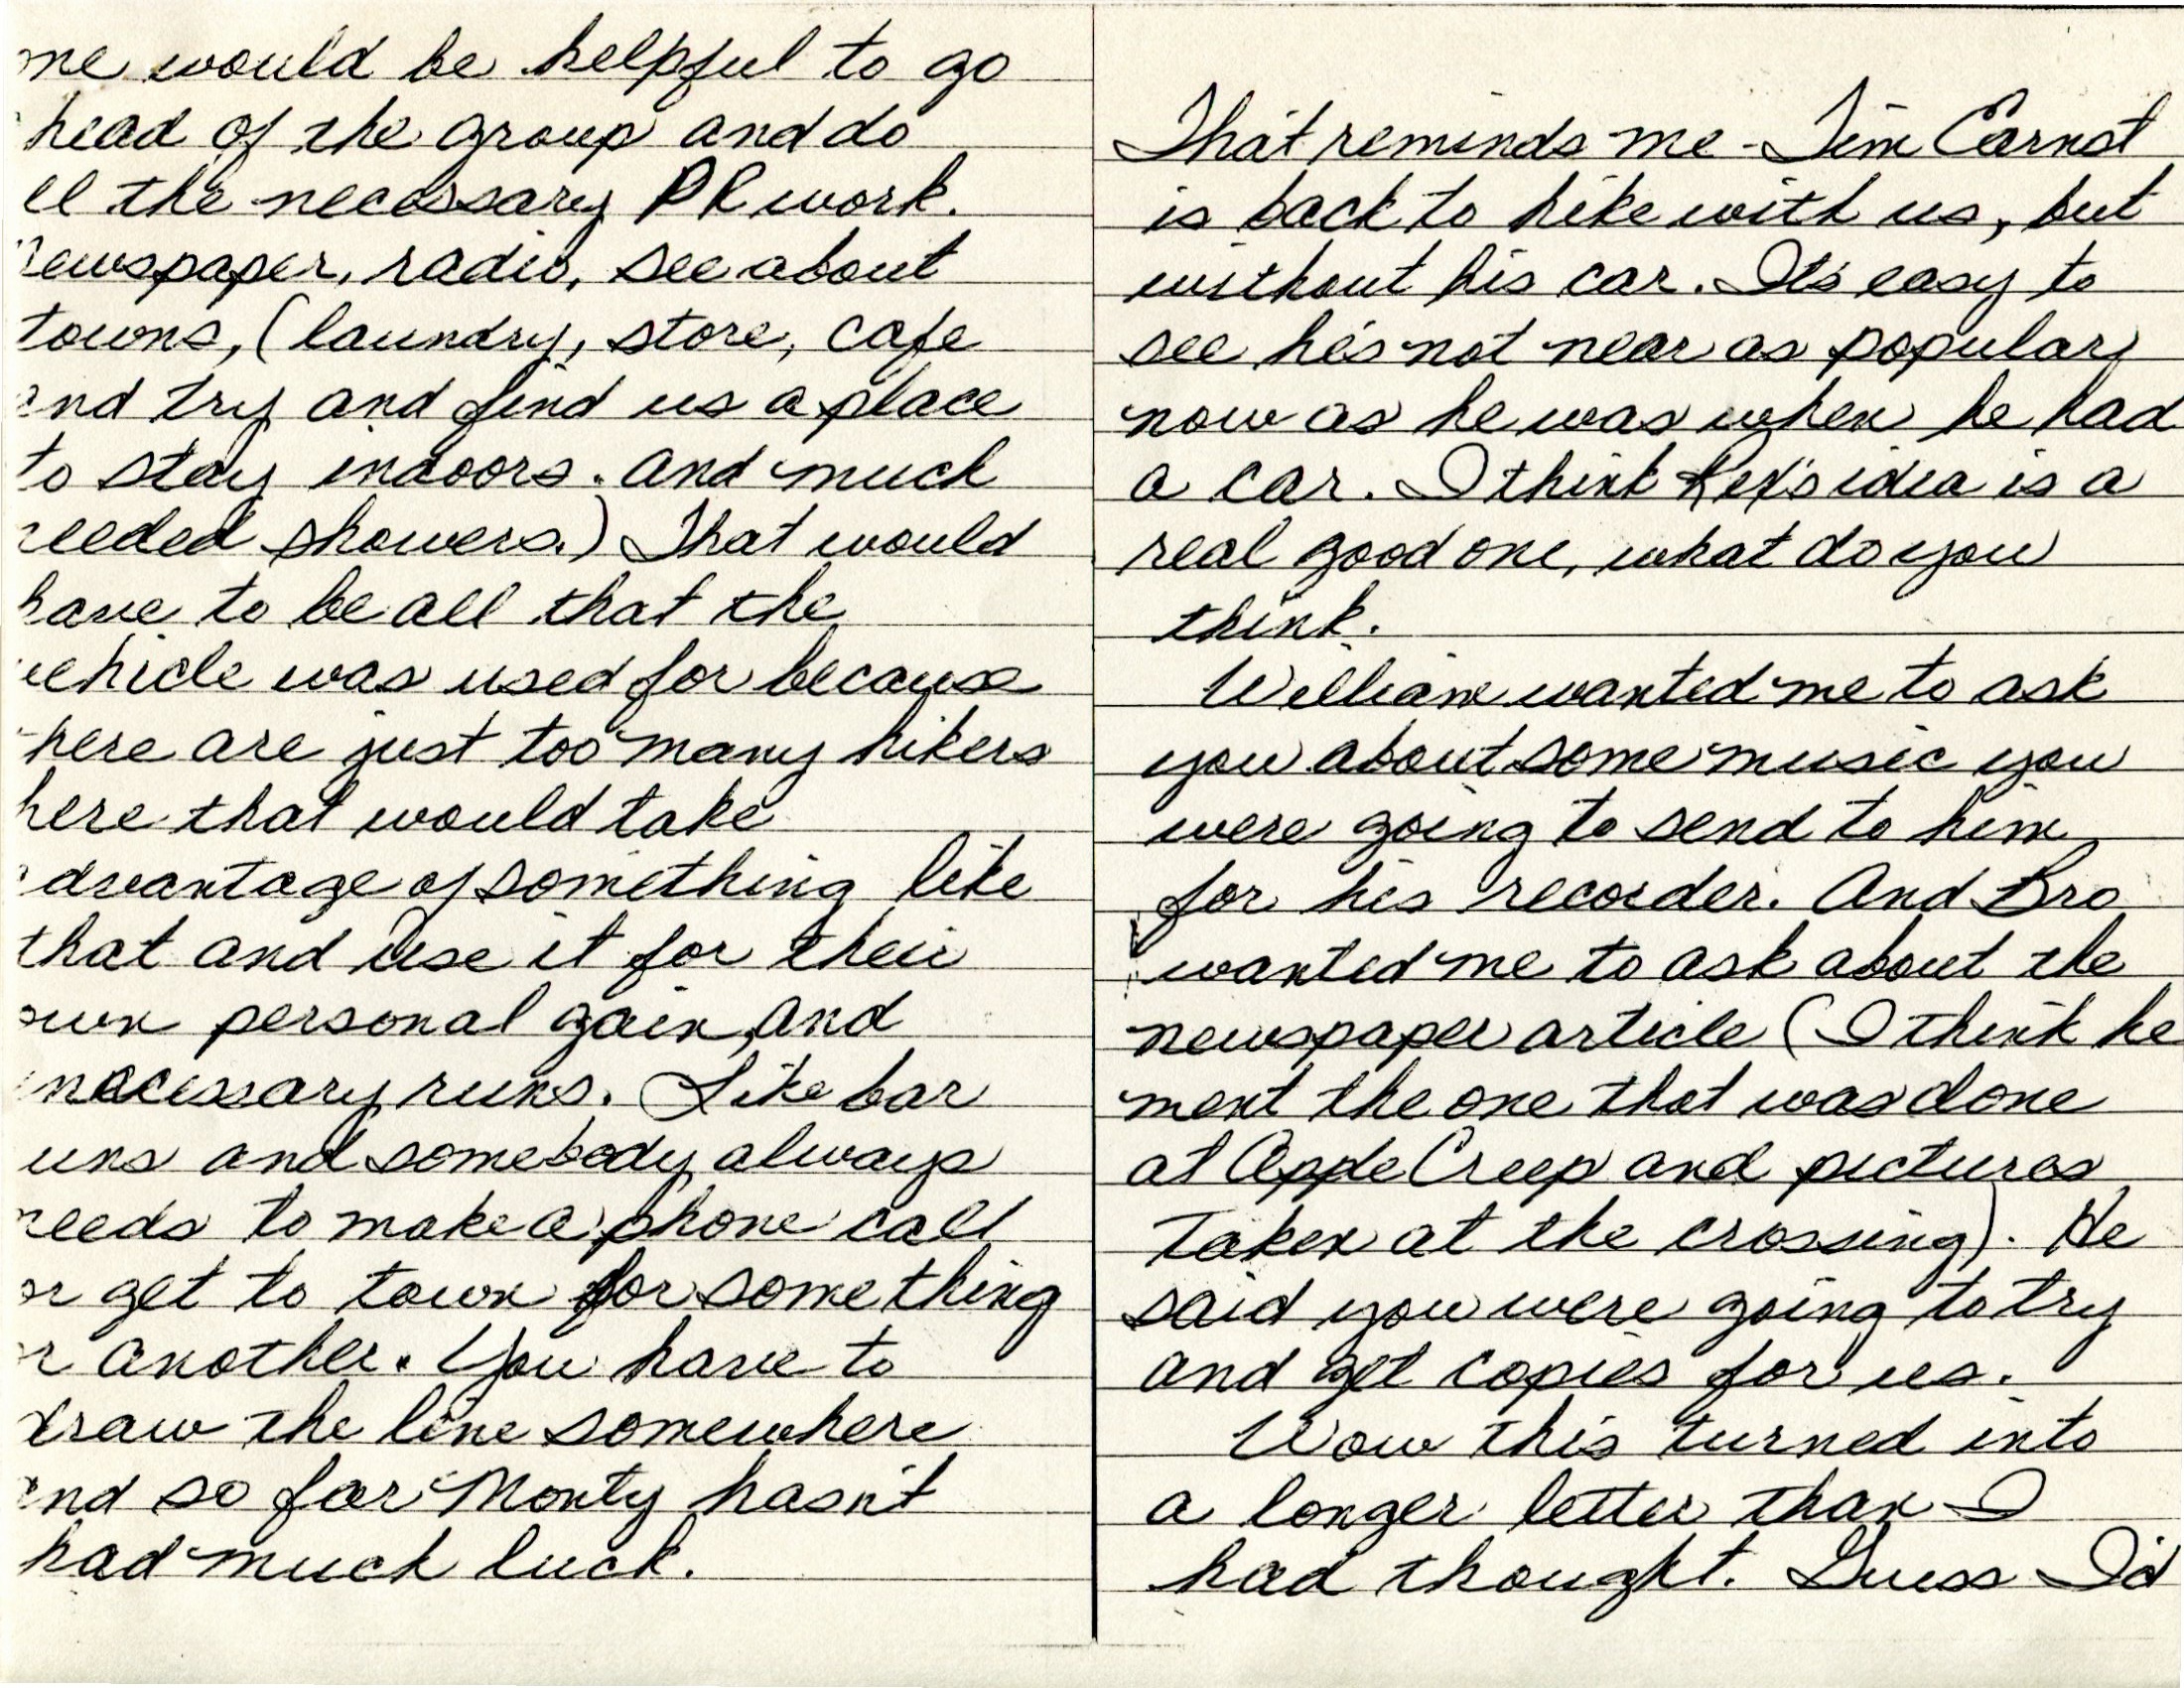 me would be helpful to go
head of the group and do
ll the necessary PR work.
ewspaper, radio, see about
towns, (laundry, store, cafe
nd try and find us a place
to stay indoors. and much
eeded showers.) That would
have to be all that the
ehicle was used for because
here are just too many hikers
here that would take
dvantage of something like
that and use it for their
own personal gain, and
necessary runs. Like bar
uns and somebody always
needs to make a phone call
or get to town for something
r another. You have to
draw the line somewhere
nd so far Monty hasn't
had much luck.
That reminds me - Jim Earnst
is back to hike with us, but
without his car. It's easy to
see he's not near as popular
now as he was when he had
a car. I think Rex's idea is a
real good one, what do you
think.
William wanted me to ask
you about some music you
were going to send to him
for his recorder. And Bro
wanted me to ask about the
newspaper article (I think he
ment the one that was done
at Apple Creep and pictures
taken at the crossing). He
said you were going to try
and get copies for us.
Wow this turned into
a longer letter than I
had thought. Guess I'd